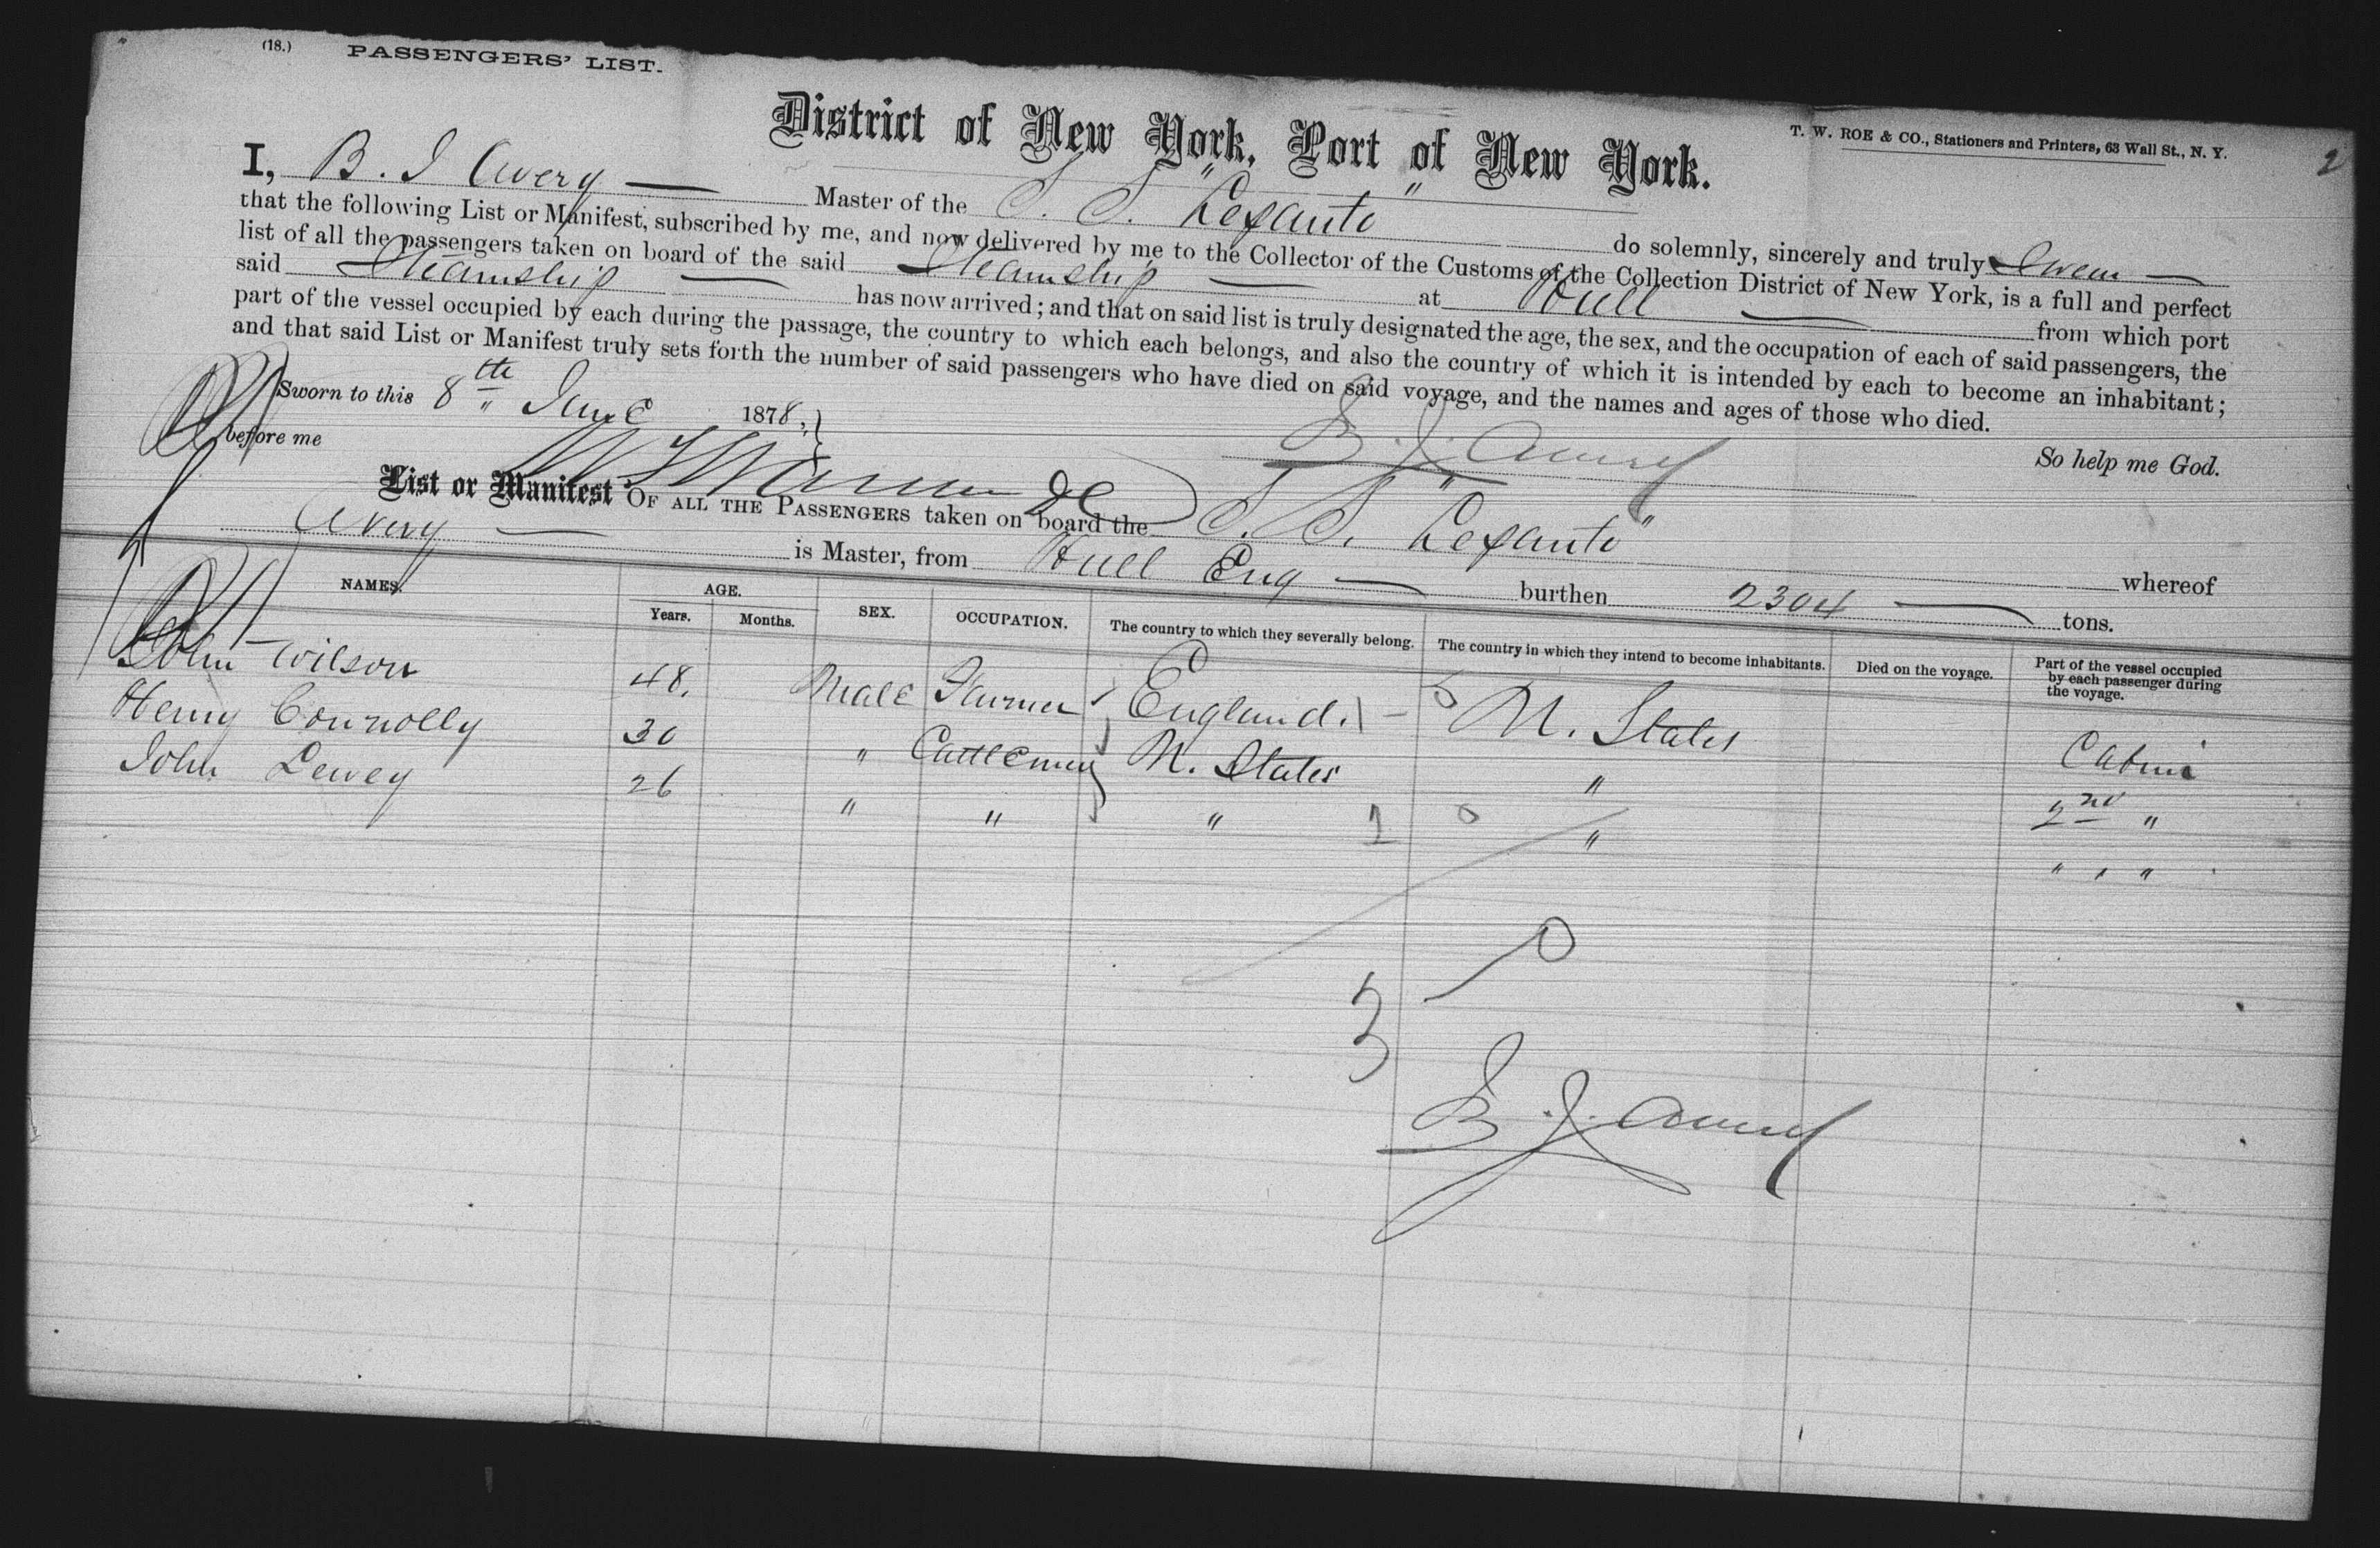 (18.) PASSENGERS' LIST.
T. W. ROE & CO., Stationers and Printers, 63 Wall St., N. Y.
2
District of New York, Port of New York.
I, B. J Avery Master of the S. S. "Lepanto" do solemnly, sincerely and truly Swear
that the following List or Manifest, subscribed by me, and now delivered by me to the Collector of the Customs of the Collection District of New York, is a full and perfect
list of all the passengers taken on board of the said Steamship at Hull from which port
said Steamship has now arrived; and that on said list is truly designated the age, the sex, and the occupation of each of said passengers, the
part of the vessel occupied by each during the passage, the country to which each belongs, and also the country of which it is intended by each to become an inhabitant;
and that said List or Manifest truly sets forth the number of said passengers who have died on said voyage, and the names and ages of those who died.
So help me God.
Sworn to this 8th June 1878,
before me
B. J. Avery
List or Manifest OF ALL THE PASSENGERS taken on board the S. S. "Lepanto" whereof
Avery is Master, from Hull Eng burthen 2304 tons.
NAMES. AGE. SEX. OCCUPATION. The country to which they severally belong. The country in which they intend to become inhabitants. Died on the voyage. Part of the vessel occupied by each passenger during the voyage.
Years. Months.
John Wilson 48. Male Farmer England. U. States Cabin
Henry Connolly 30 " Cattleman U. States " 2nd "
John Dewey 26 " " " " " " "
1
0
3
B. J. Avery